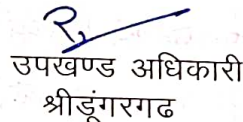 उपखण्ड अधिकारी
श्रीडूंगरगढ